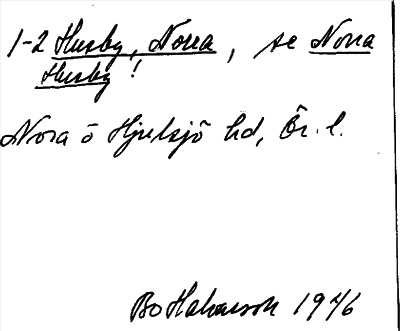 1-2 Husby, Nora, se Nora
Husby!
Nora o Hjulsjö hd, Ör. l.
Bo Håkansson 1976